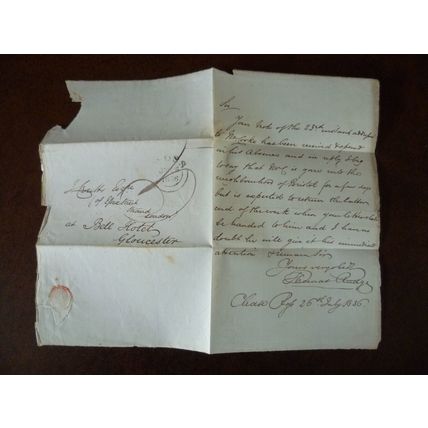 Esqr
Strand
London
at Bell Hotel
Gloucester
Sir
Your Note of the 23rd instant addressed
to Mr Cooke has been received & opened
in his absence and in reply I beg
to say that Mr C is gone into the
neighbourhood of Bristol for a few days
but is expected to return the latter
end of the week when your letter shall
be handed to him and I have no
doubt he will give it his immediate
attention I remain Sir
Yours very obdly
Thomas
26th July 1836